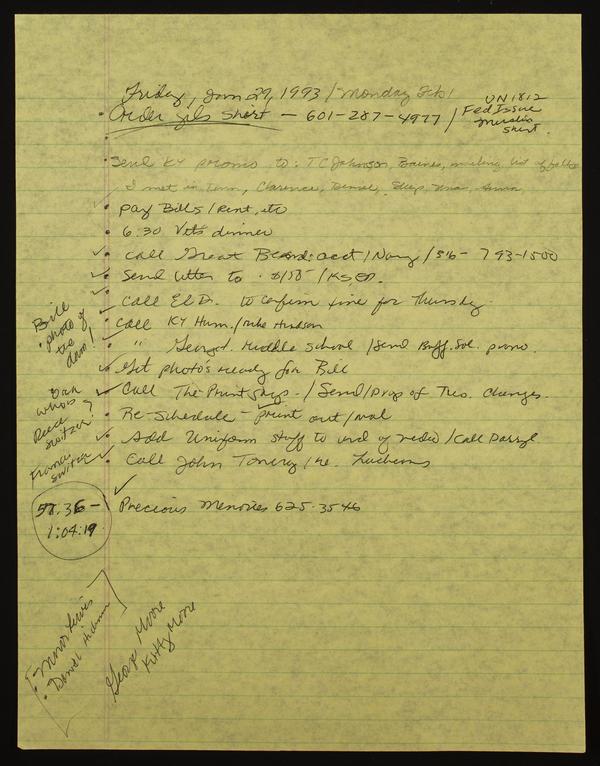 Friday, Jan 29, 1993 / Monday Feb 1
Order Gils Shirt - 601-287-4977 / Fed Issue
UN 1812
Muslin
shirt.
Send KY promo to: TC Johnson, Barnes, mailing list of folks
I met in Tenn, Clarence,
pay Bills / Rent, etc
6:30 Vets dinner
call Great Beards: acct / Navy / 516-793-1500
Send letter to
Call El D. to confirm time for Thursday.
Call KY Hum. / Mike Hudson
" Georgt. Middle School / Send Buff. Sol. promo.
Get photo's ready for Bill
Call The Print Shop. / Send / Drop of Tues. Changes.
Re-Schedule - print out / mail
Add Uniform stuff to end of video / Call Darryl
Call John / re. Luncheons
Precious Memories 625-3546
Bill
photo of
the
dam!
who's
Reece
Switzer?
57.36 -
1:04:19
George Moore
Kitty Moore